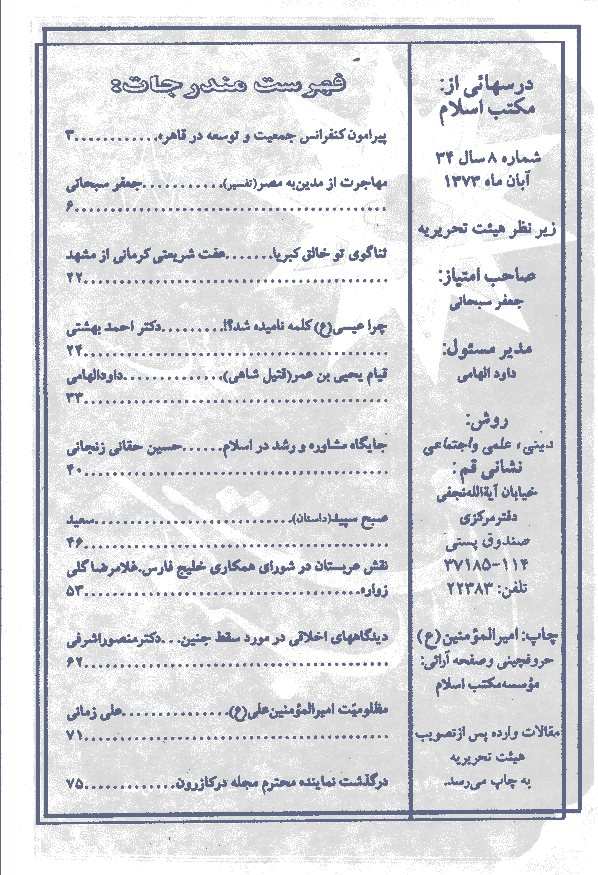 درسهائی از:
مکتب اسلام
شماره ۸ سال ۳۴
آبان ماه ۱۳۷۳
زیر نظر هیئت تحریریه
صاحب امتیاز:
جعفر سبحانی
مدیر مسئول:
داود الهامی
روش:
دینی، علمی واجتماعی
نشانی قم:
خیابان آیةالله‌نجفی
دفترمرکزی
صندوق پستی
۳۷۱۸۵-۱۱۴
تلفن: ۲۲۳۸۳
چاپ: امیرالمؤمنین(ع)
حروفچینی وصفحه آرائی:
مؤسسه‌مکتب اسلام
مقالات وارده پس ازتصویب
هیئت تحریریه
به چاپ می‌رسد.
فهرست مندرجات:
پیرامون کنفرانس جمعیت و توسعه در قاهره............۳
مهاجرت از مدین‌به مصر(تفسیر)...........جعفر سبحانی
.............................................۶
ثناگوی تو خالق کبریا.......عفت شریعتی کرمانی از مشهد
...........................................۲۲
چرا عیسی(ع) کلمه نامیده شد؟!.........دکتر احمد بهشتی
...........................................۲۴
قیام یحیی بن عمر(قتیل شاهی).............داودالهامی
...........................................۳۳
جایگاه مشاوره و رشد در اسلام......حسین حقانی زنجانی
...........................................۴۰
صبح سپید(داستان).........................سعید
...........................................۴۶
نقش عربستان در شورای همکاری خلیج فارس.غلامرضاگلی
زواره.......................................۵۳
دیدگاههای اخلاقی در مورد سقط جنین...دکترمنصوراشرفی
...........................................۶۲
مظلومیّت امیرالمؤمنین‌علی(ع)..............علی زمانی
...........................................۷۱
درگذشت نماینده محترم مجله درکازرون.............۷۵